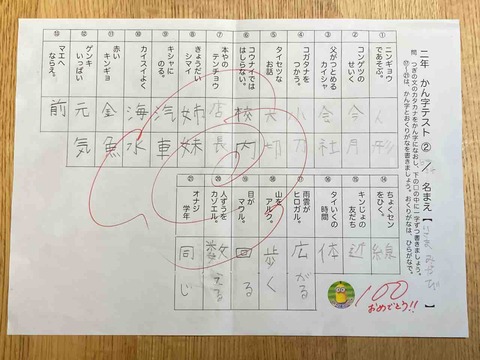 二年 かん字テスト ② 名まえ【 】
問 つぎの文のカタカナをかん字になおし、下の□の中に一字ずつ書きましょう。
⑰~㉑は、かん字とおくりがなを書きましょう。おくりがなは、ひらがなで。
① ニンギョウであそぶ。 人形
② コンゲツのせいく 今月
③ 父がつとめるカイシャ 会社
④ コガタナをつかう。 小刀
⑤ タイセツなお話 大切
⑥ コウナイでははしらない。 校内
⑦ 本やのテンチョウ 店長
⑧ きょうだいシマイ 姉妹
⑨ キシャにのる。 汽車
⑩ カイスイよく 海水
⑪ 赤いキンギョ 金魚
⑫ ゲンキいっぱい 元気
⑬ マエへならえ。 前
⑭ ちょくセンをひく。 線
⑮ キンじょの友だち 近
⑯ タイいくの時間 体
⑰ 雨雲がヒロガル。 広がる
⑱ 山をアルク。 歩く
⑲ 目がマワル。 回る
⑳ 人ずうをカゾエル。 数える
㉑ オナジ学年 同じ
100
おめでとう!!